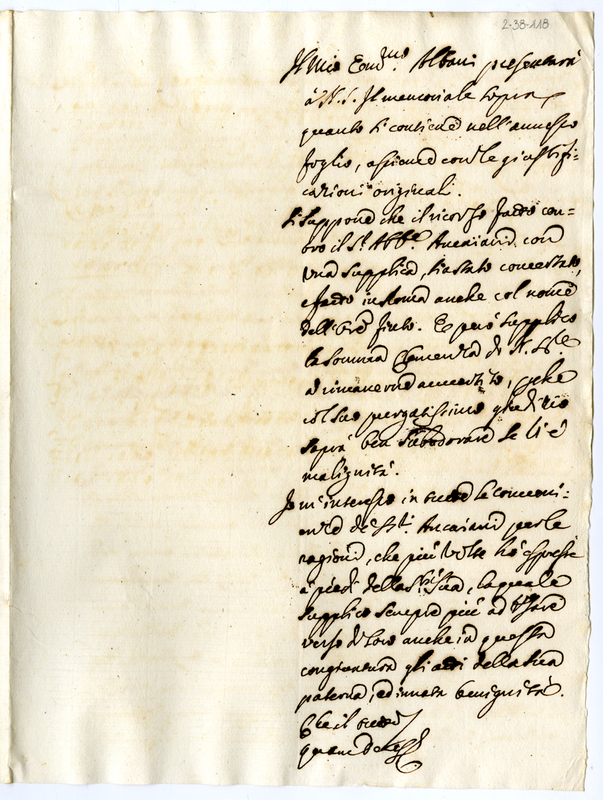 2-38-118
Il mio Em.mo Albani presenterà
à N. S. Il memoriale sopra
quanto si contiene nell'annesso
foglio, assieme con le giustifi=
cationi originali.
Si suppone che il ricorso fatto con=
tro il S.r Abb.e Ancaiani con
una supplica, sia stato concertato,
e fatto in Roma anche col nome
dell'Ore finto. E però supplico
la somma Clemenza di N. S.re
à rimanerne avvertito, che
col suo purgatissimo giuditio
saprà ben subodorare se vi è
malignità.
Io m'interesso in tutte le conveni=
enze de SS.ri Ancaiani per le
ragioni, che più volte hò espresse
à piedi della S.tà Sua, la quale
supplico sempre più ad usare
verso di loro anche in questa
congiuntura gli atti della sua
paterna, ed innata benignità.
Che il tutto